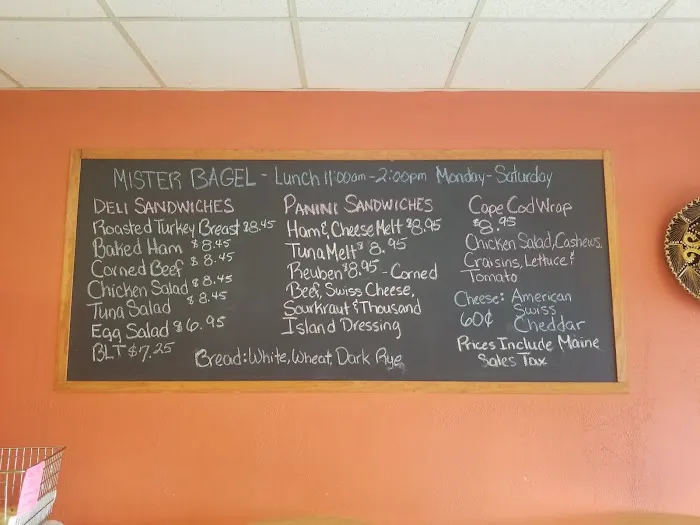 MISTER BAGEL - Lunch 11:00am - 2:00pm Monday - Saturday
DELI SANDWICHES
Roasted Turkey Breast $8.45
Baked Ham $8.45
Corned Beef $8.45
Chicken Salad $8.45
Tuna Salad $8.45
Egg Salad $6.95
BLT $7.25
PANINI SANDWICHES
Ham & Cheese Melt $8.95
Tuna Melt $8.95
Reuben $8.95 - Corned
Beef, Swiss Cheese,
Sourkraut & Thousand
Island Dressing
Bread: White, Wheat, Dark Rye
Cape Cod Wrap
$8.95
Chicken Salad, Cashews,
Craisins, Lettuce &
Tomato
Cheese: American
60¢ Swiss
Cheddar
Prices Include Maine
Sales Tax